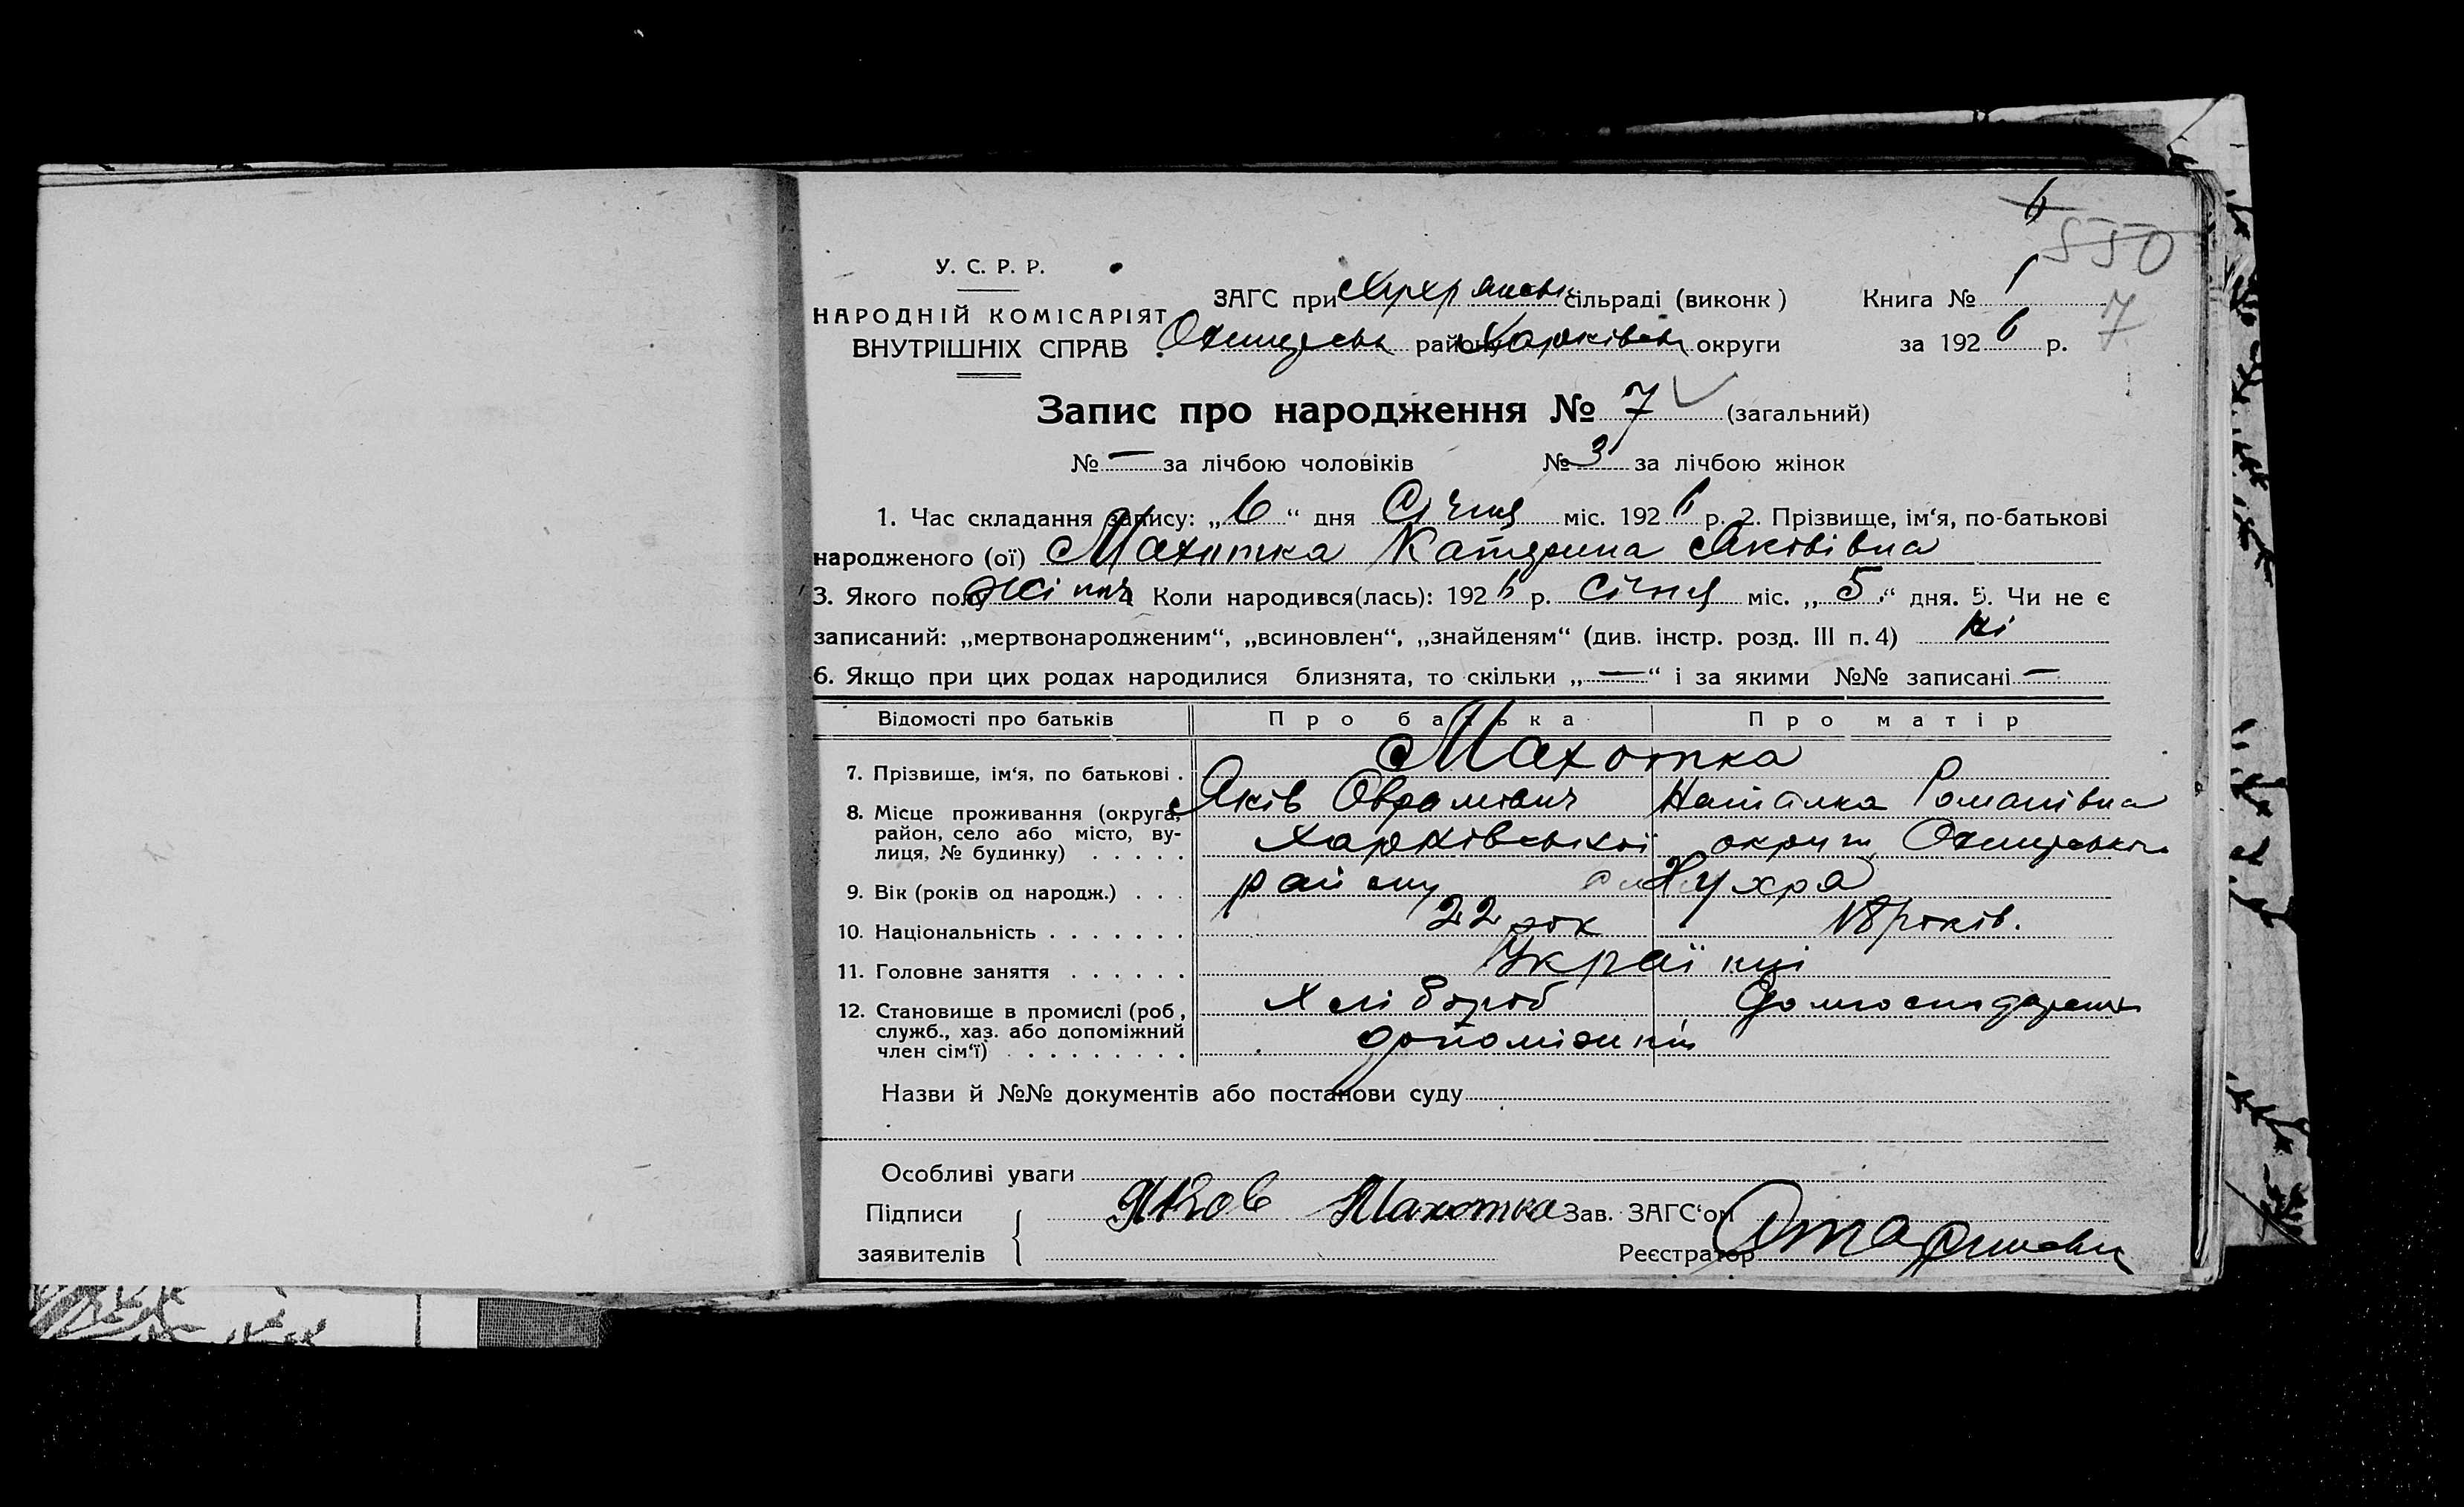 6
550
У. С. Р. Р.
НАРОДНІЙ КОМІСАРІЯТ
ВНУТРІШНІХ СПРАВ
ЗАГС при Хухрянськ сільраді (виконк) Книга № 1
7
Охтирськ району Харківськ округи за 1926 р.
Запис про народження № 7 (загальний)
№ — за лічбою чоловіків № 3 за лічбою жінок
1. Час складання запису: „6“ дня Січня міс. 1926 р. 2. Прізвище, ім‘я, по-батькові
народженого (ої) Махотка Катерина Яківівна
3. Якого полу жіноч 4 Коли народився(лась): 1926 р. Січня міс. „5“ дня. 5. Чи не є
записаний: „мертвонародженим“, „всиновлен“, „знайденям“ (див. інстр. розд. III п. 4) ні
6. Якщо при цих родах народилися близнята, то скільки „—“ і за якими №№ записані —
Відомості про батьків Про батька Про матір
7. Прізвище, ім‘я, по батькові . Махотка
Яків Оврамович Наталка Романівна
8. Місце проживання (округа, район, село або місто, вулиця, № будинку) . . . . .
Харківської округи Охтирського
9. Вік (років од народж.) . . . району Хухра
22 рок 18 років.
10. Національність . . . . . . .
Українці
11. Головне заняття . . . . . .
Хлібороб Домогосподарка
12. Становище в промислі (роб, служб., хаз. або допоміжний член сім‘ї) . . . . . . . . .
допоміжний
Назви й №№ документів або постанови суду
Особливі уваги
Підписи
заявителів
Яков Махотка Зав. ЗАГС‘ом
Реєстратор